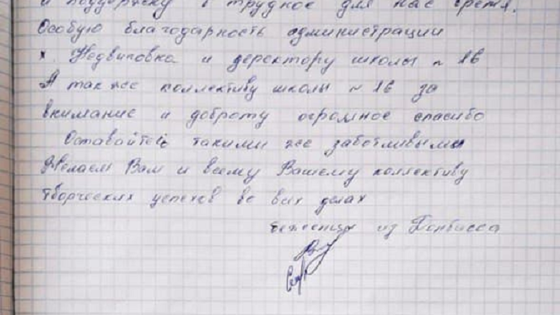 и поддержку в трудное для нас время.
Особую благодарность администрации
х. Недвиговка и деректору школы ~ 16
А так же коллективу школы ~ 16 за
внимание и доброту огромное спасибо
Оставайтесь такими же заботливыми
Желаем Вам и всему Вашему коллективу
творческих успехов во всех делах
беженцы из Донбасса